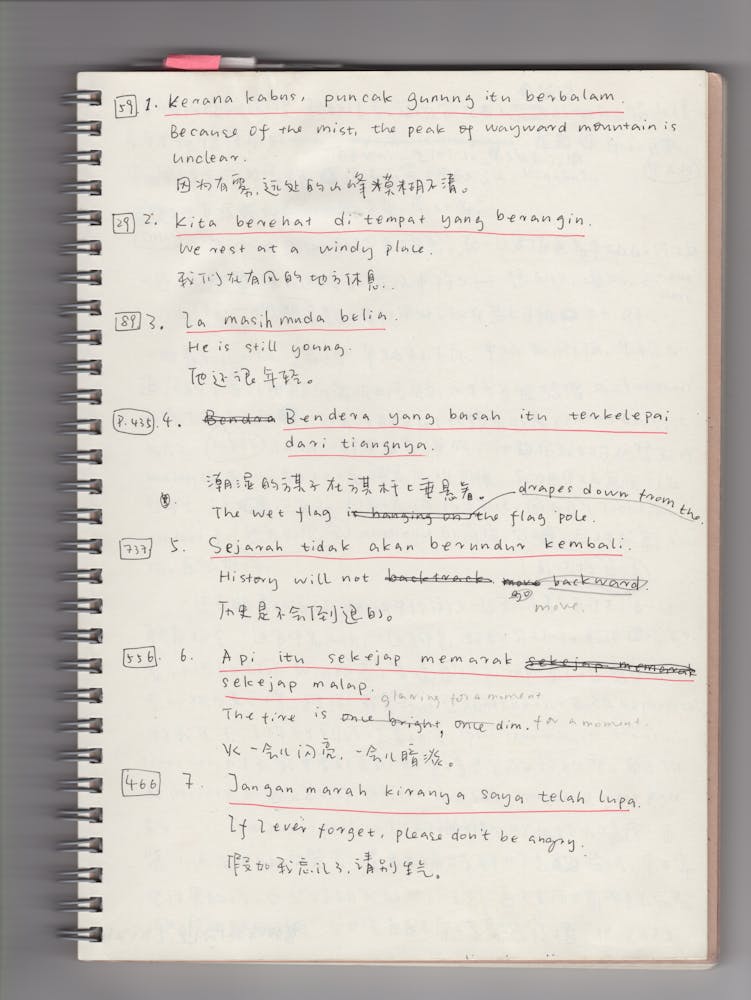 59 1. Kerana kabus, puncak gunung itu berbalam.
Because of the mist, the peak of wayward mountain is
unclear.
因为有雾,远处的山峰模糊不清。
29 2. Kita berehat di tempat yang berangin.
We rest at a windy place.
我们在有风的地方休息.
89 3. Ia masih muda belia.
He is still young.
他还很年轻。
P.435. 4. Bendra Bendera yang basah itu terkelepai
dari tiangnya.
潮湿的旗子在旗杆上垂悬着。
drapes down from the
The wet flag is hanging on the flag pole.
737 5. Sejarah tidak akan berundur kembali.
History will not backtrack move backward.
go move.
历史是不会倒退的。
556. 6. Api itu sekejap memarak sekejap memarak
sekejap malap.
glaring for a moment
The fire is once bright, once dim. for a moment.
火一会儿闪亮,一会儿暗淡。
466 7. Jangan marah kiranya saya telah lupa.
If I ever forget, please don't be angry.
假如我忘记了,请别生气。